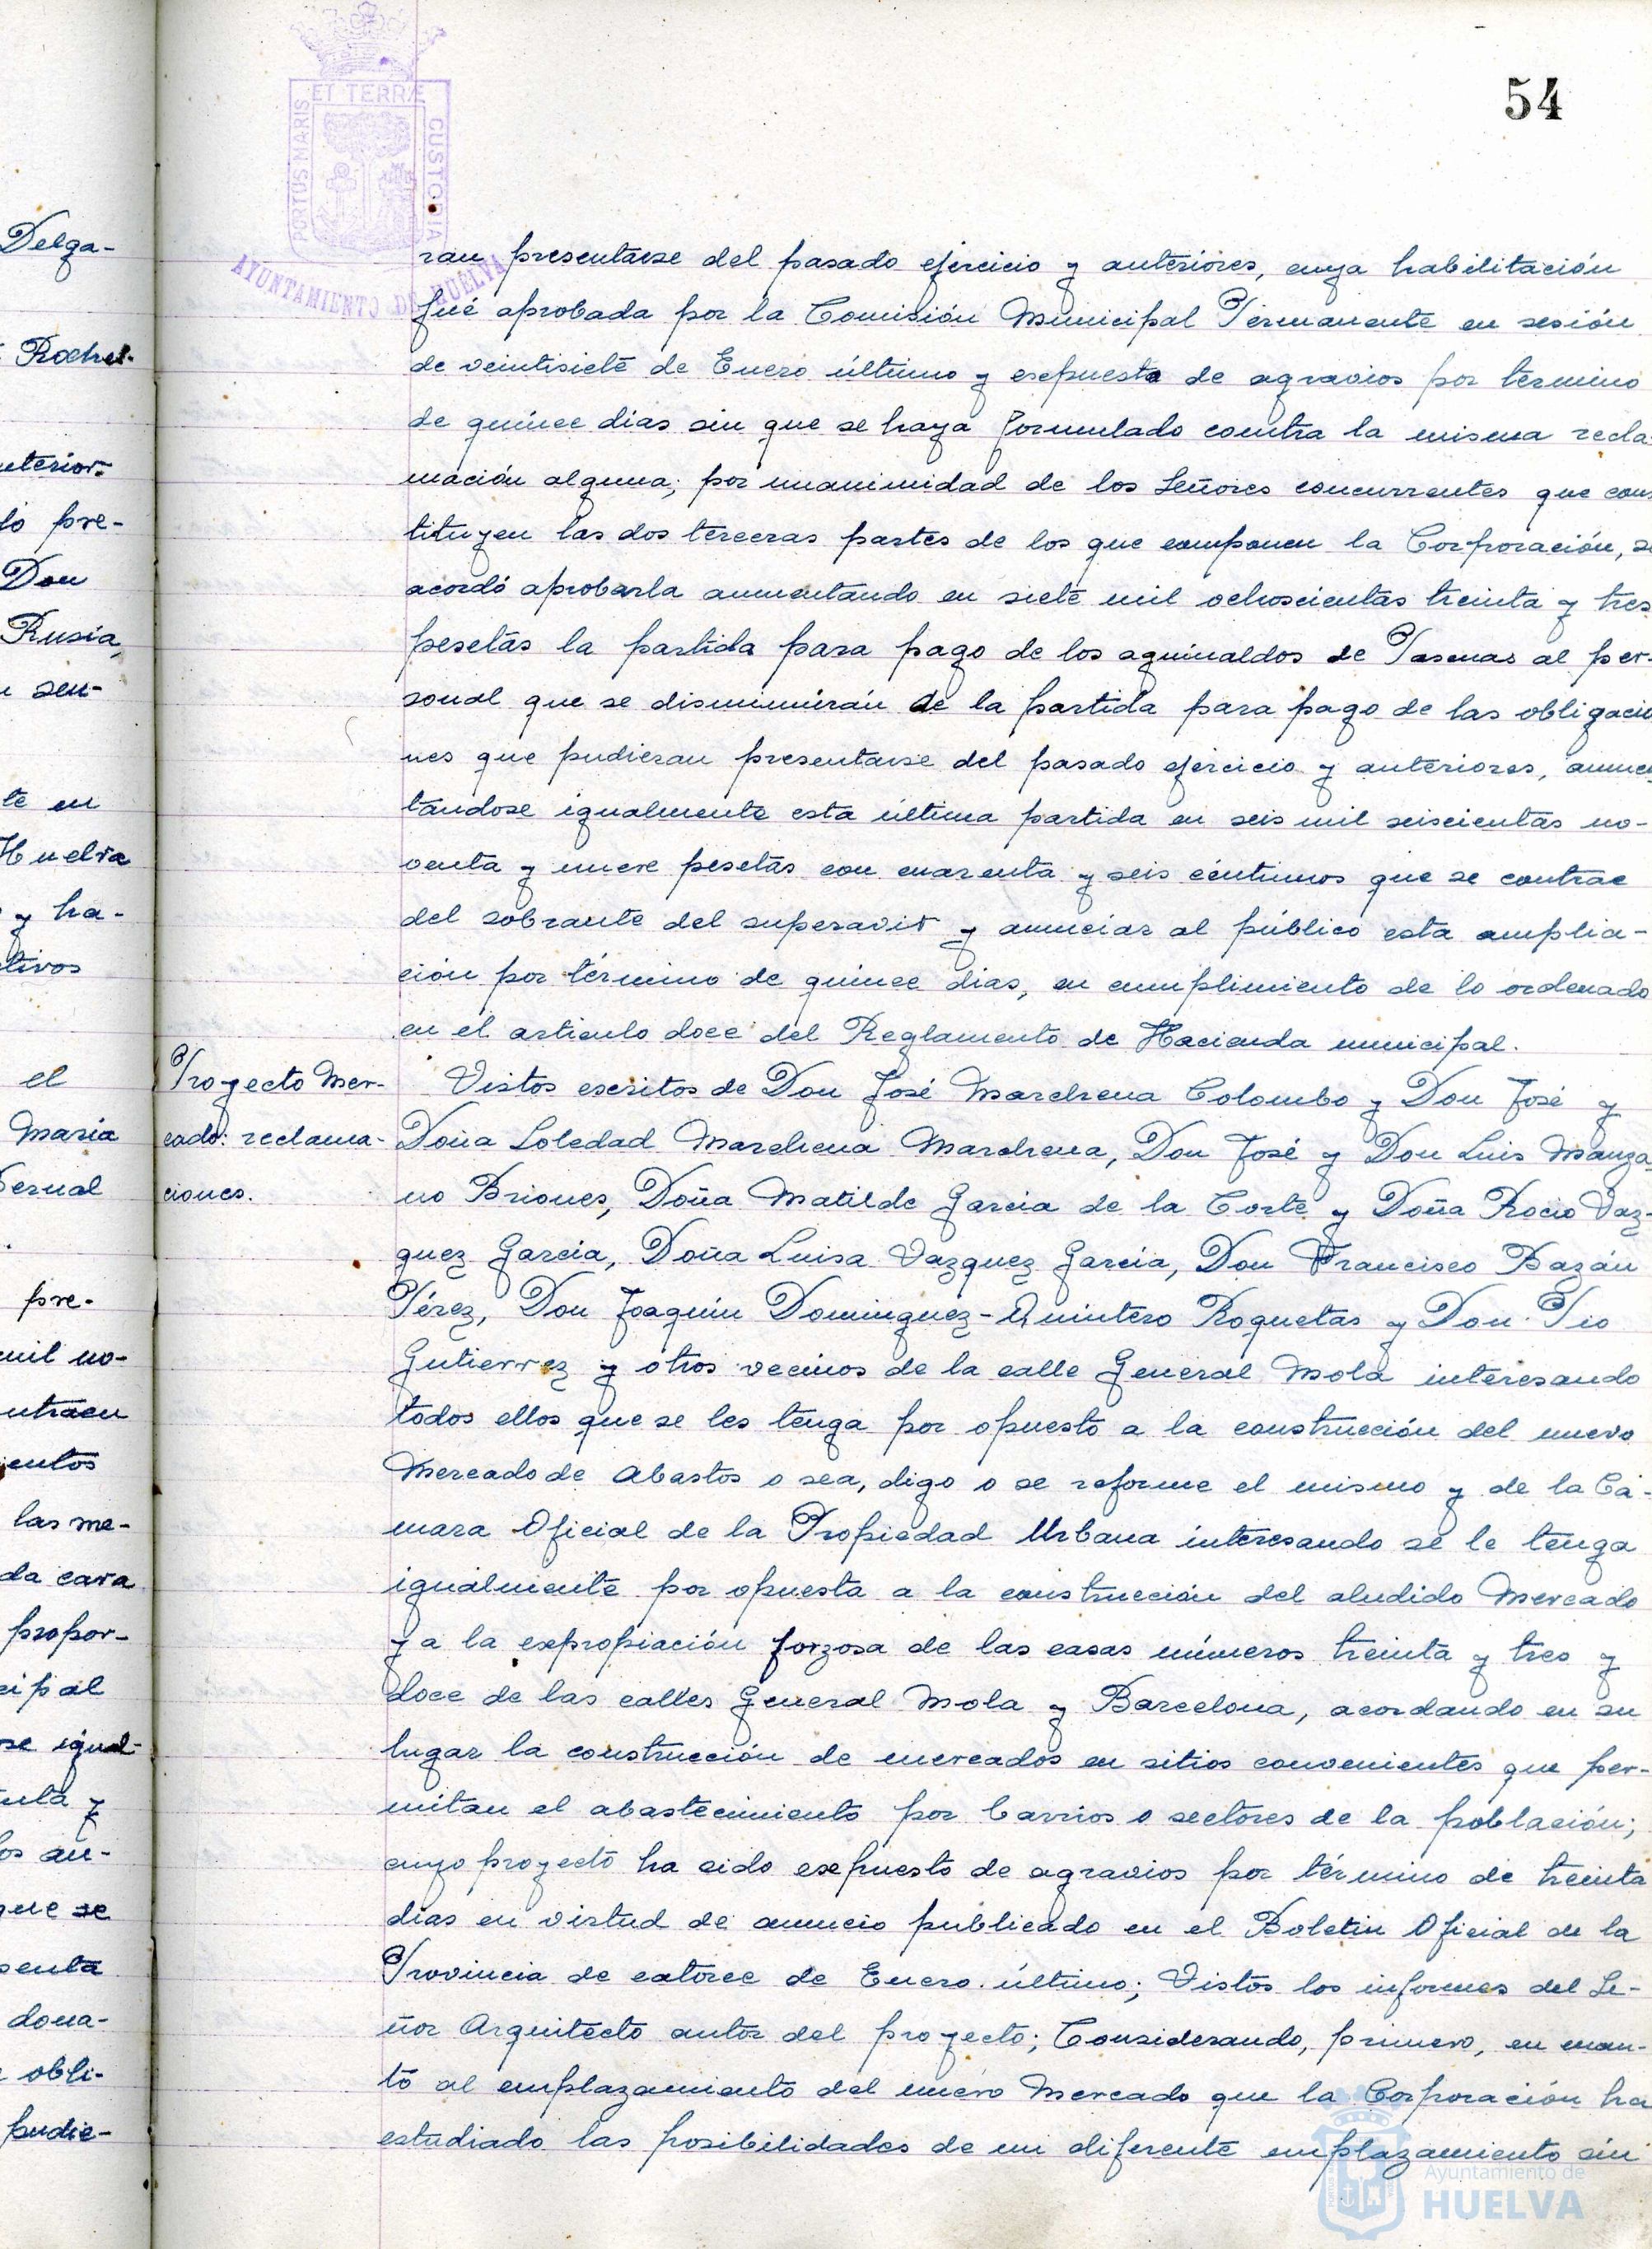 54
PORTUS MARIS ET TERRÆ CUSTODIA
AYUNTAMIENTO DE HUELVA
Delga-
Rusia,
Don
nterior-
lo pre-
te en
Huelva
y ha-
el
Maria
pre-
mil no-
las me-
da cara
propor-
se igual-
que se
dona-
obli-
pudie-
ran presentarse del pasado ejercicio y anteriores, cuya habilitación
fué aprobada por la Comisión Municipal Permanente en sesión
de veintisiete de Enero último y expuesta de agravios por termino
de quince dias sin que se haya formulado contra la misma recla-
mación alguna; por unanimidad de los Señores concurrentes que cons
tituyen las dos terceras partes de los que componen la Corporación, se
acordó aprobarla aumentando en siete mil ochoscientas treinta y tres
pesetas la partida para pago de los aguinaldos de Pascuas al per-
sonal que se disminuirán de la partida para pago de las obligacio
nes que pudieran presentarse del pasado ejercicio y anteriores, aumen
tándose igualmente esta última partida en seis mil seiscientas no-
venta y nueve pesetas con cuarenta y seis céntimos que se contrae
del sobrante del superavit y anunciar al público esta amplia-
ción por término de quince dias, en cumplimiento de lo ordenado
en el articulo doce del Reglamento de Hacienda municipal.
Proyecto Mer-
cado: reclama-
ciones.
Vistos escritos de Don José Marchena Colombo y Don José y
Doña Soledad Marchena Marchena, Don José y Don Luis Manza
no Briones, Doña Matilde Garcia de la Corte y Doña Rocio Vaz-
quez Garcia, Doña Luisa Vazquez Garcia, Don Francisco Bazán
Pérez, Don Joaquin Dominguez-Quintero Roquetas y Don Pio
Gutierrez y otros vecinos de la calle General Mola interesando
todos ellos que se les tenga por opuesto a la construcción del nuevo
Mercado de Abastos o sea, digo o se reforme el mismo y de la Cá-
mara Oficial de la Propiedad Urbana interesando se le tenga
igualmente por opuesta a la construcción del aludido Mercado
y a la expropiación forzosa de las casas números treinta y tres y
doce de las calles General Mola y Barcelona, acordando en su
lugar la construcción de mercados en sitios convenientes que per-
mitan el abastecimiento por barrios o sectores de la población;
cuyo proyecto ha sido expuesto de agravios por término de treinta
dias en virtud de anuncio publicado en el Boletin Oficial de la
Provincia de catorce de Enero último; Vistos los informes del Se-
ñor Arquitecto autor del proyecto; Considerando, primero, en cuan-
to al emplazamiento del nuevo Mercado que la Corporación ha
estudiado las posibilidades de un diferente emplazamiento sin
Ayuntamiento de
HUELVA